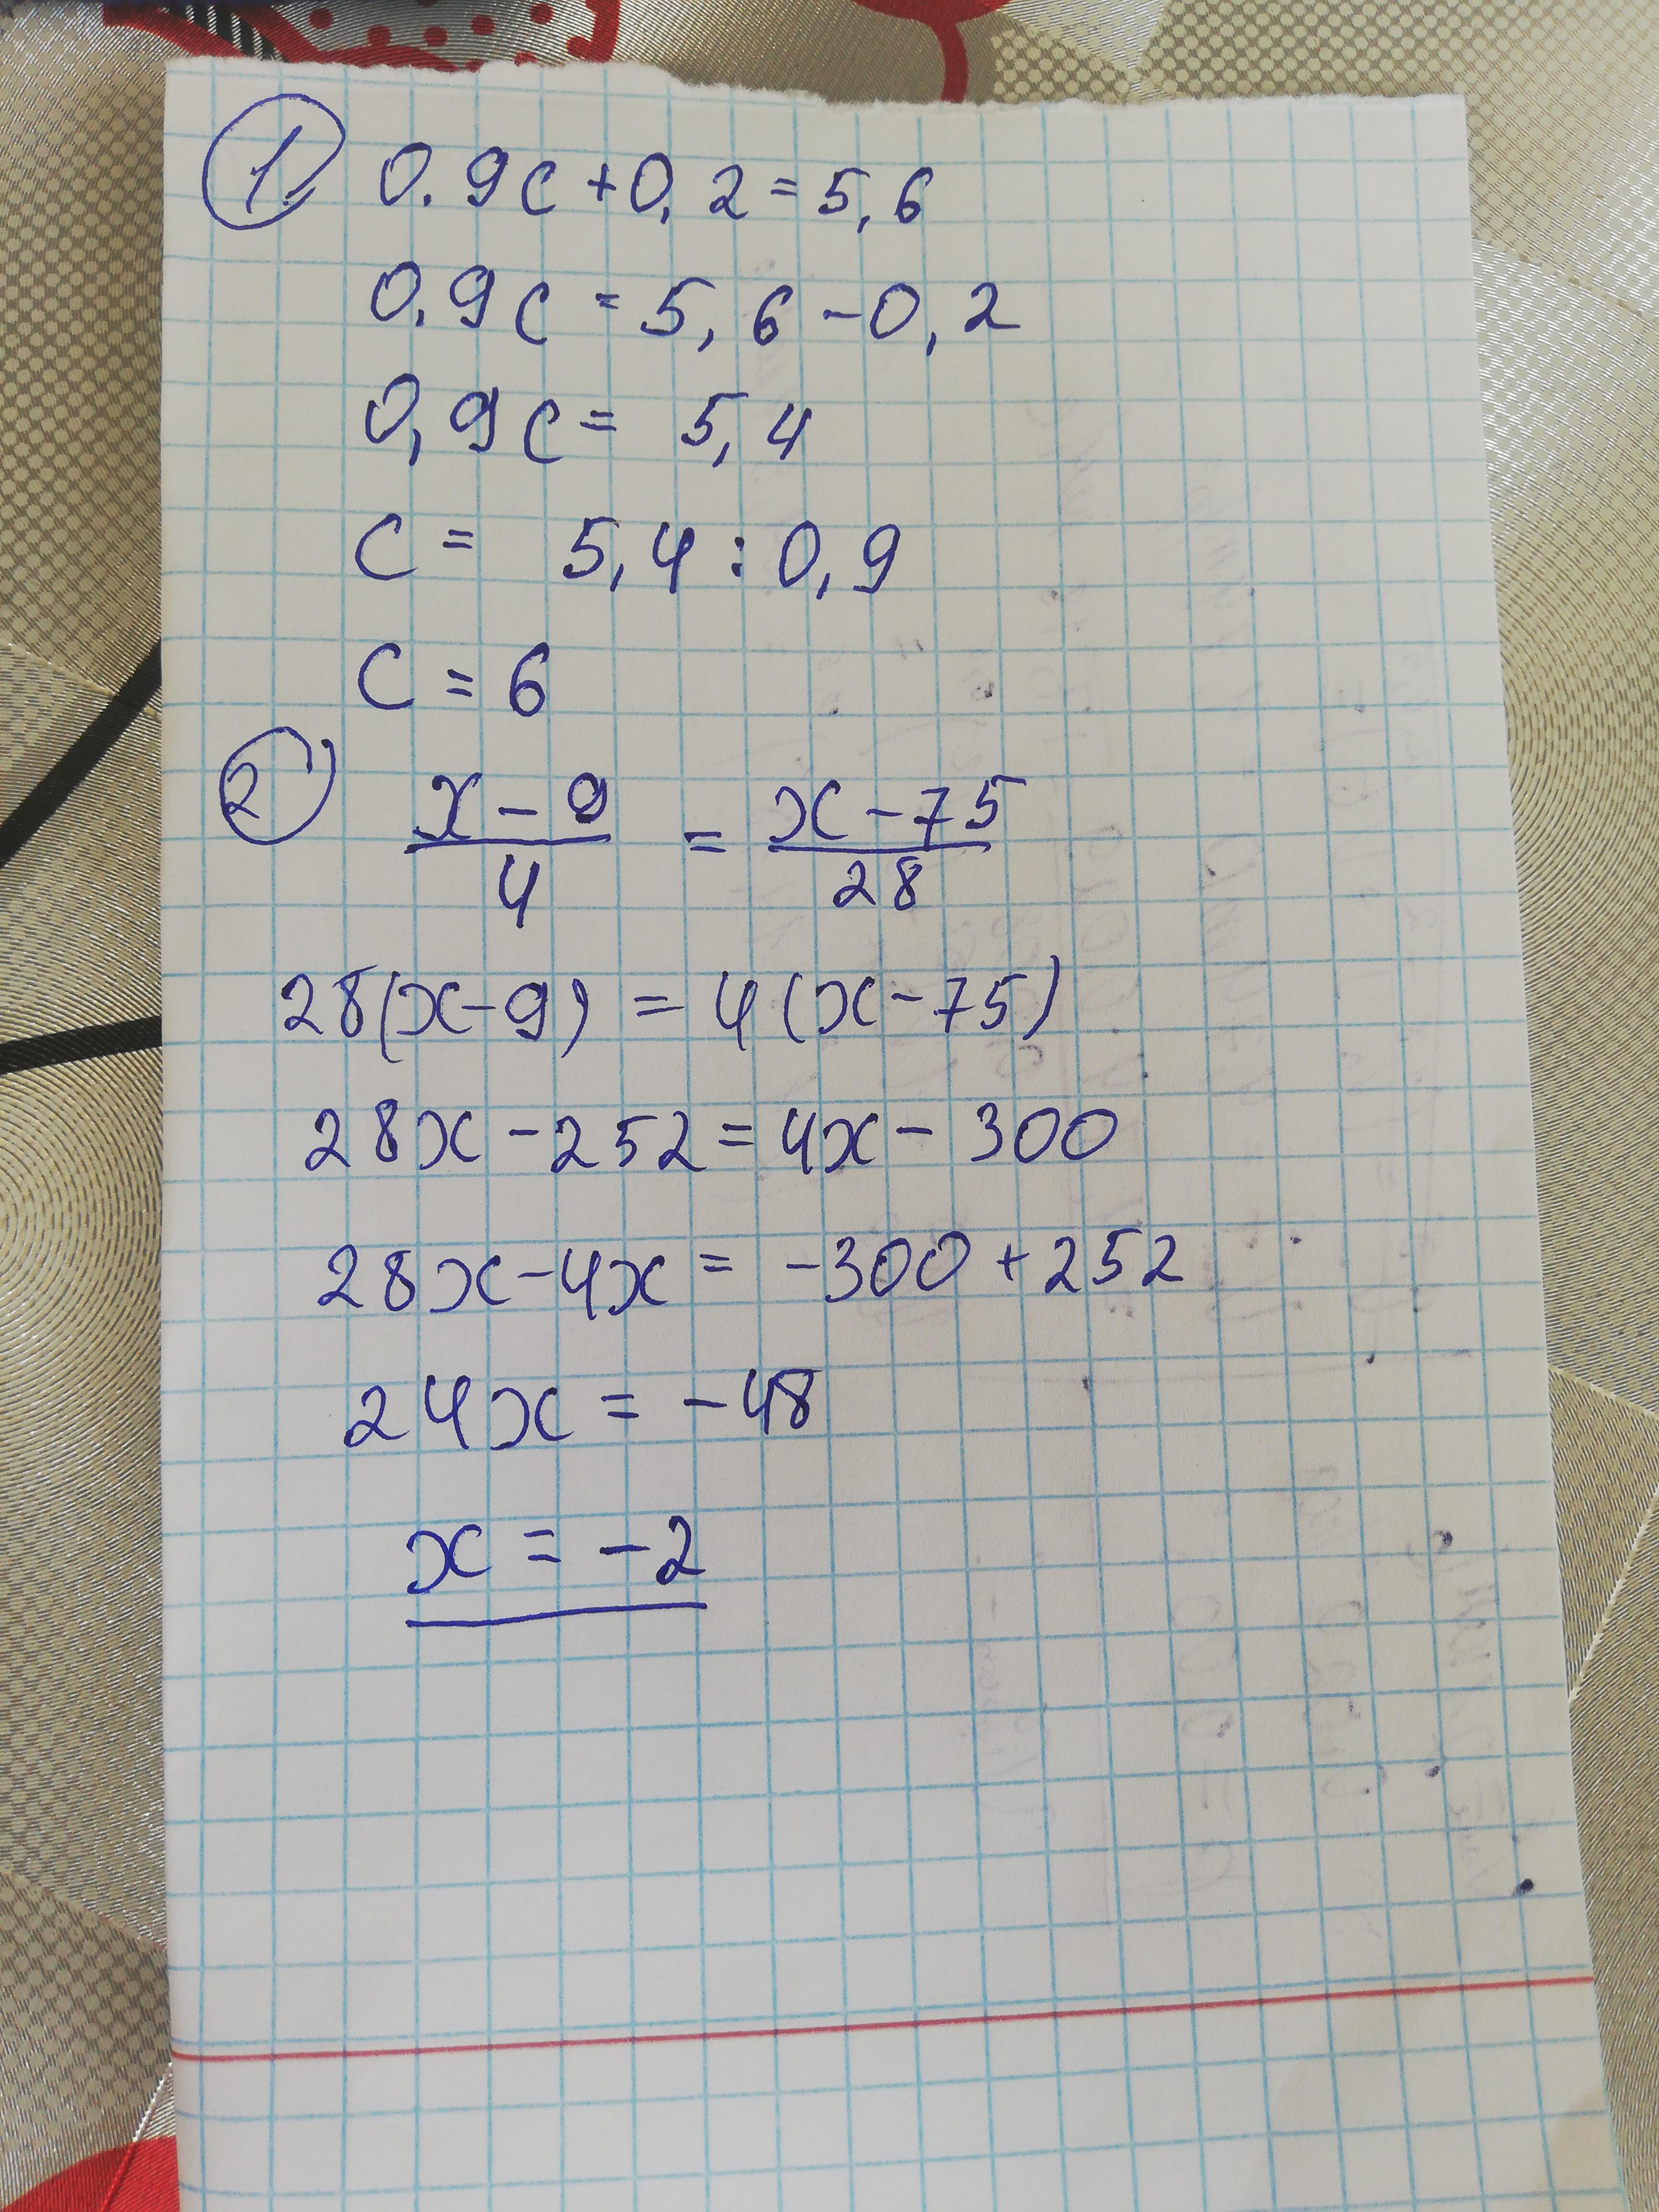 1. 0.9c+0,2=5,6
0,9c=5,6-0,2
0,9c= 5,4
c= 5,4:0,9
c=6
2) x-9/4 = x-75/28
28(x-9)=4(x-75)
28x-252=4x-300
28x-4x= -300+252
24x= -48
x= -2